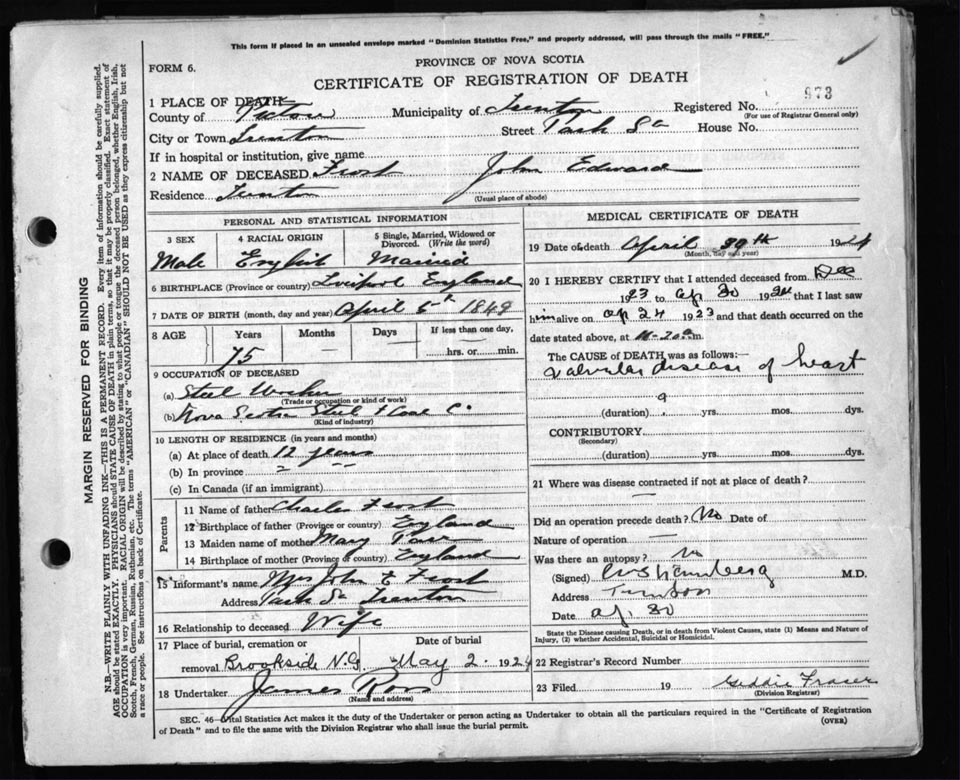 This form if placed in an unsealed envelope marked "Dominion Statistics Free," and properly addressed, will pass through the mails "FREE."
FORM 6.
PROVINCE OF NOVA SCOTIA
CERTIFICATE OF REGISTRATION OF DEATH
973
1 PLACE OF DEATH
County of Pictou Municipality of Trenton Registered No.
(For use of Registrar General only)
City or Town Trenton Street Park Sq House No.
If in hospital or institution, give name
2 NAME OF DECEASED Frost John Edward
Residence Trenton (Usual place of abode)
PERSONAL AND STATISTICAL INFORMATION
3 SEX 4 RACIAL ORIGIN 5 Single, Married, Widowed or Divorced. (Write the word)
Male English Married
6 BIRTHPLACE (Province or country) Liverpool England
7 DATE OF BIRTH (month, day and year) April 5th 1849
8 AGE Years Months Days If less than one day,
75 hrs. or min.
9 OCCUPATION OF DECEASED
(a) Steel Worker
(Trade or occupation or kind of work)
(b) Nova Scotia Steel & Coal Co
(Kind of industry)
10 LENGTH OF RESIDENCE (in years and months)
(a) At place of death 12 years
(b) In province " "
(c) In Canada (if an immigrant)
Parents
11 Name of father Charles Frost
12 Birthplace of father (Province or country) England
13 Maiden name of mother Mary
14 Birthplace of mother (Province or country) England
15 Informant's name Mrs John E Frost
Address Park Sq Trenton
16 Relationship to deceased Wife
17 Place of burial, cremation or Date of burial
removal Brookside N.G. May 2. 1924
18 Undertaker James Ross
(Name and address)
MEDICAL CERTIFICATE OF DEATH
19 Date of death April 30th 1924
(Month, day and year)
20 I HEREBY CERTIFY that I attended deceased from Dec
1923 to Ap 30 1924 that I last saw
him alive on ap 24 1923 and that death occurred on the
date stated above, at 11-20 a m.
The CAUSE of DEATH was as follows:—
Valvular disease of heart
(duration) yrs. mos. dys.
CONTRIBUTORY
(Secondary)
(duration) yrs. mos. dys.
21 Where was disease contracted if not at place of death?
—
Did an operation precede death? No Date of
Nature of operation —
Was there an autopsy? No
(Signed) M.D.
Address Trenton
Date ap. 30
State the Disease causing Death, or in death from Violent Causes, state (1) Means and Nature of
Injury, (2) whether Accidental, Suicidal or Homicidal.
22 Registrar's Record Number
23 Filed 19 Geddie Fraser
(Division Registrar)
SEC. 46—Vital Statistics Act makes it the duty of the Undertaker or person acting as Undertaker to obtain all the particulars required in the "Certificate of Registration
of Death" and to file the same with the Division Registrar who shall issue the burial permit. (OVER)
MARGIN RESERVED FOR BINDING
N.B.—WRITE PLAINLY WITH UNFADING INK—THIS IS A PERMANENT RECORD. Every item of information should be carefully supplied.
AGE should be stated EXACTLY. PHYSICIANS should STATE CAUSE OF DEATH in plain terms, so that it may be properly classified. Exact statement of
OCCUPATION is very important. RACIAL ORIGIN will be described by stating to what people or tongue the deceased person belonged, whether English, Irish,
Scotch, French, German, Russian, Ruthenian, etc. The terms "AMERICAN" or "CANADIAN" SHOULD NOT BE USED as they express citizenship but not
a race or people. See instructions on back of Certificate.